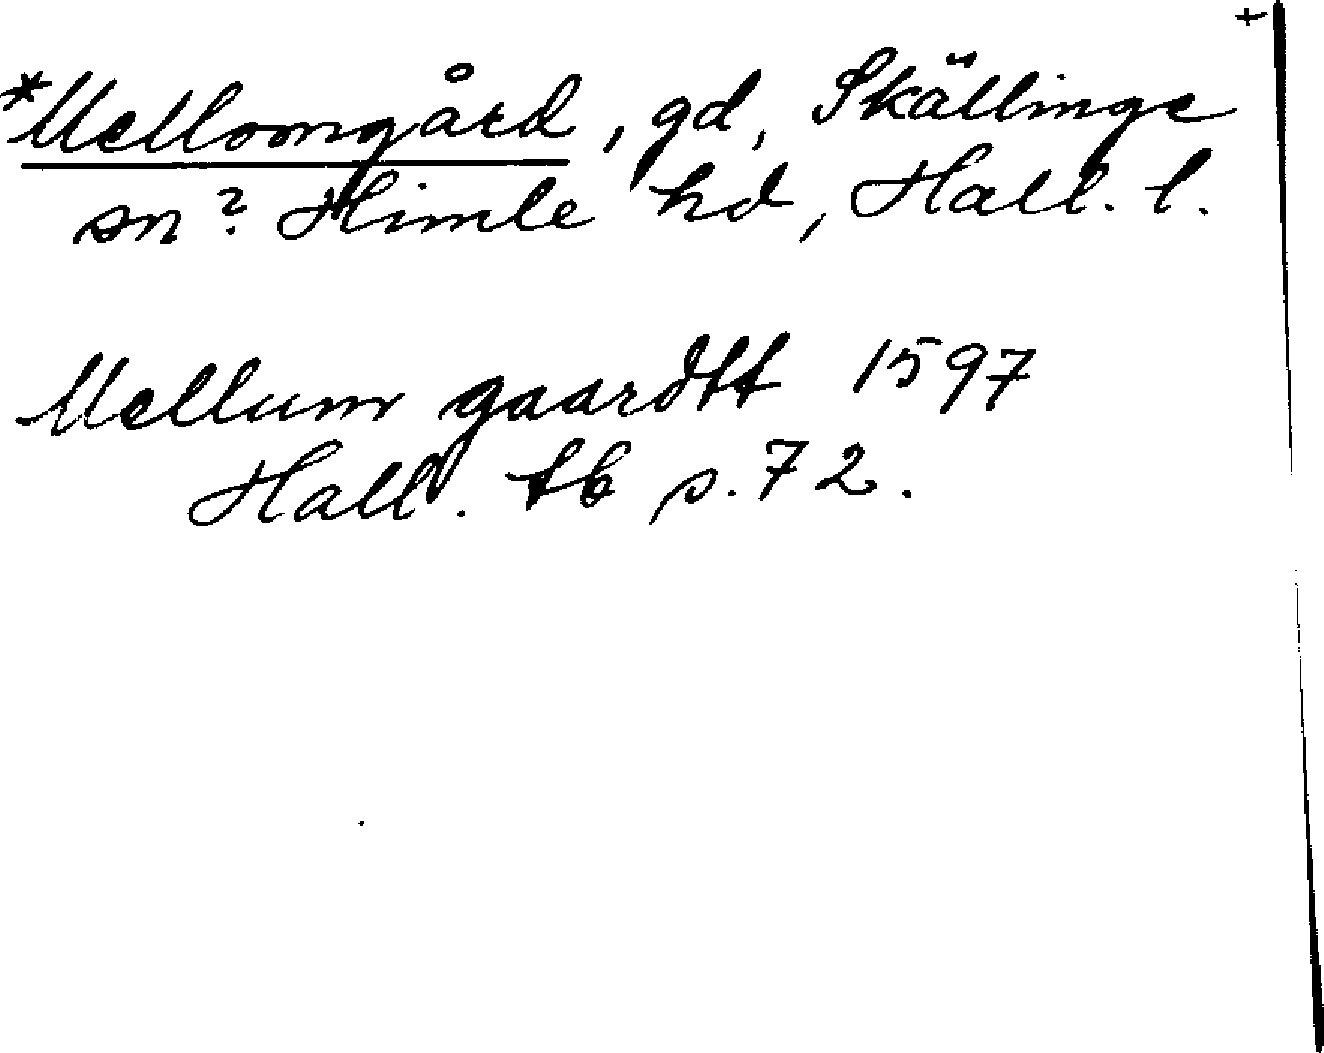 +
*Mellomgård, gd, Skällinge
sn? Himle hd, Hall. l.
Mellum gaardtt 1597
Hall. tb p. 72.